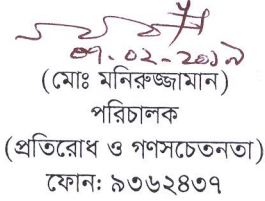 ০৭-০২-২০১৯
(মোঃ মনিরুজ্জামান)
পরিচালক
(প্রতিরোধ ও গণসচেতনতা)
ফোন: ৯৩৬২৪৩৭